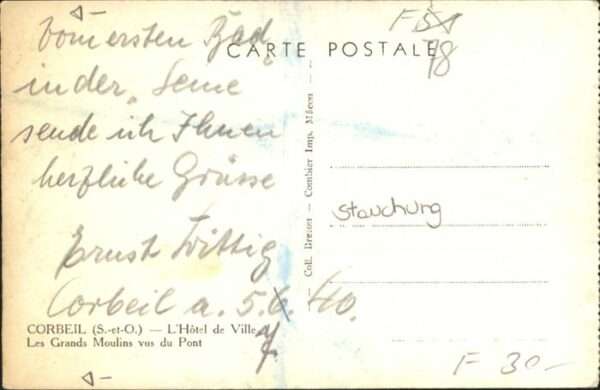 F 51
78
CARTE POSTALE
Vom ersten Bad
in der "Seine"
sende ich Ihnen
herzliche Grüsse
Ernst Wittig
Corbeil a. 5.6.40.
7
CORBEIL (S.-et-O.) — L'Hôtel de Ville
Les Grands Moulins vus du Pont
Coll. Bresson — Combier Imp. Mâcon
Stauchung
F 30-